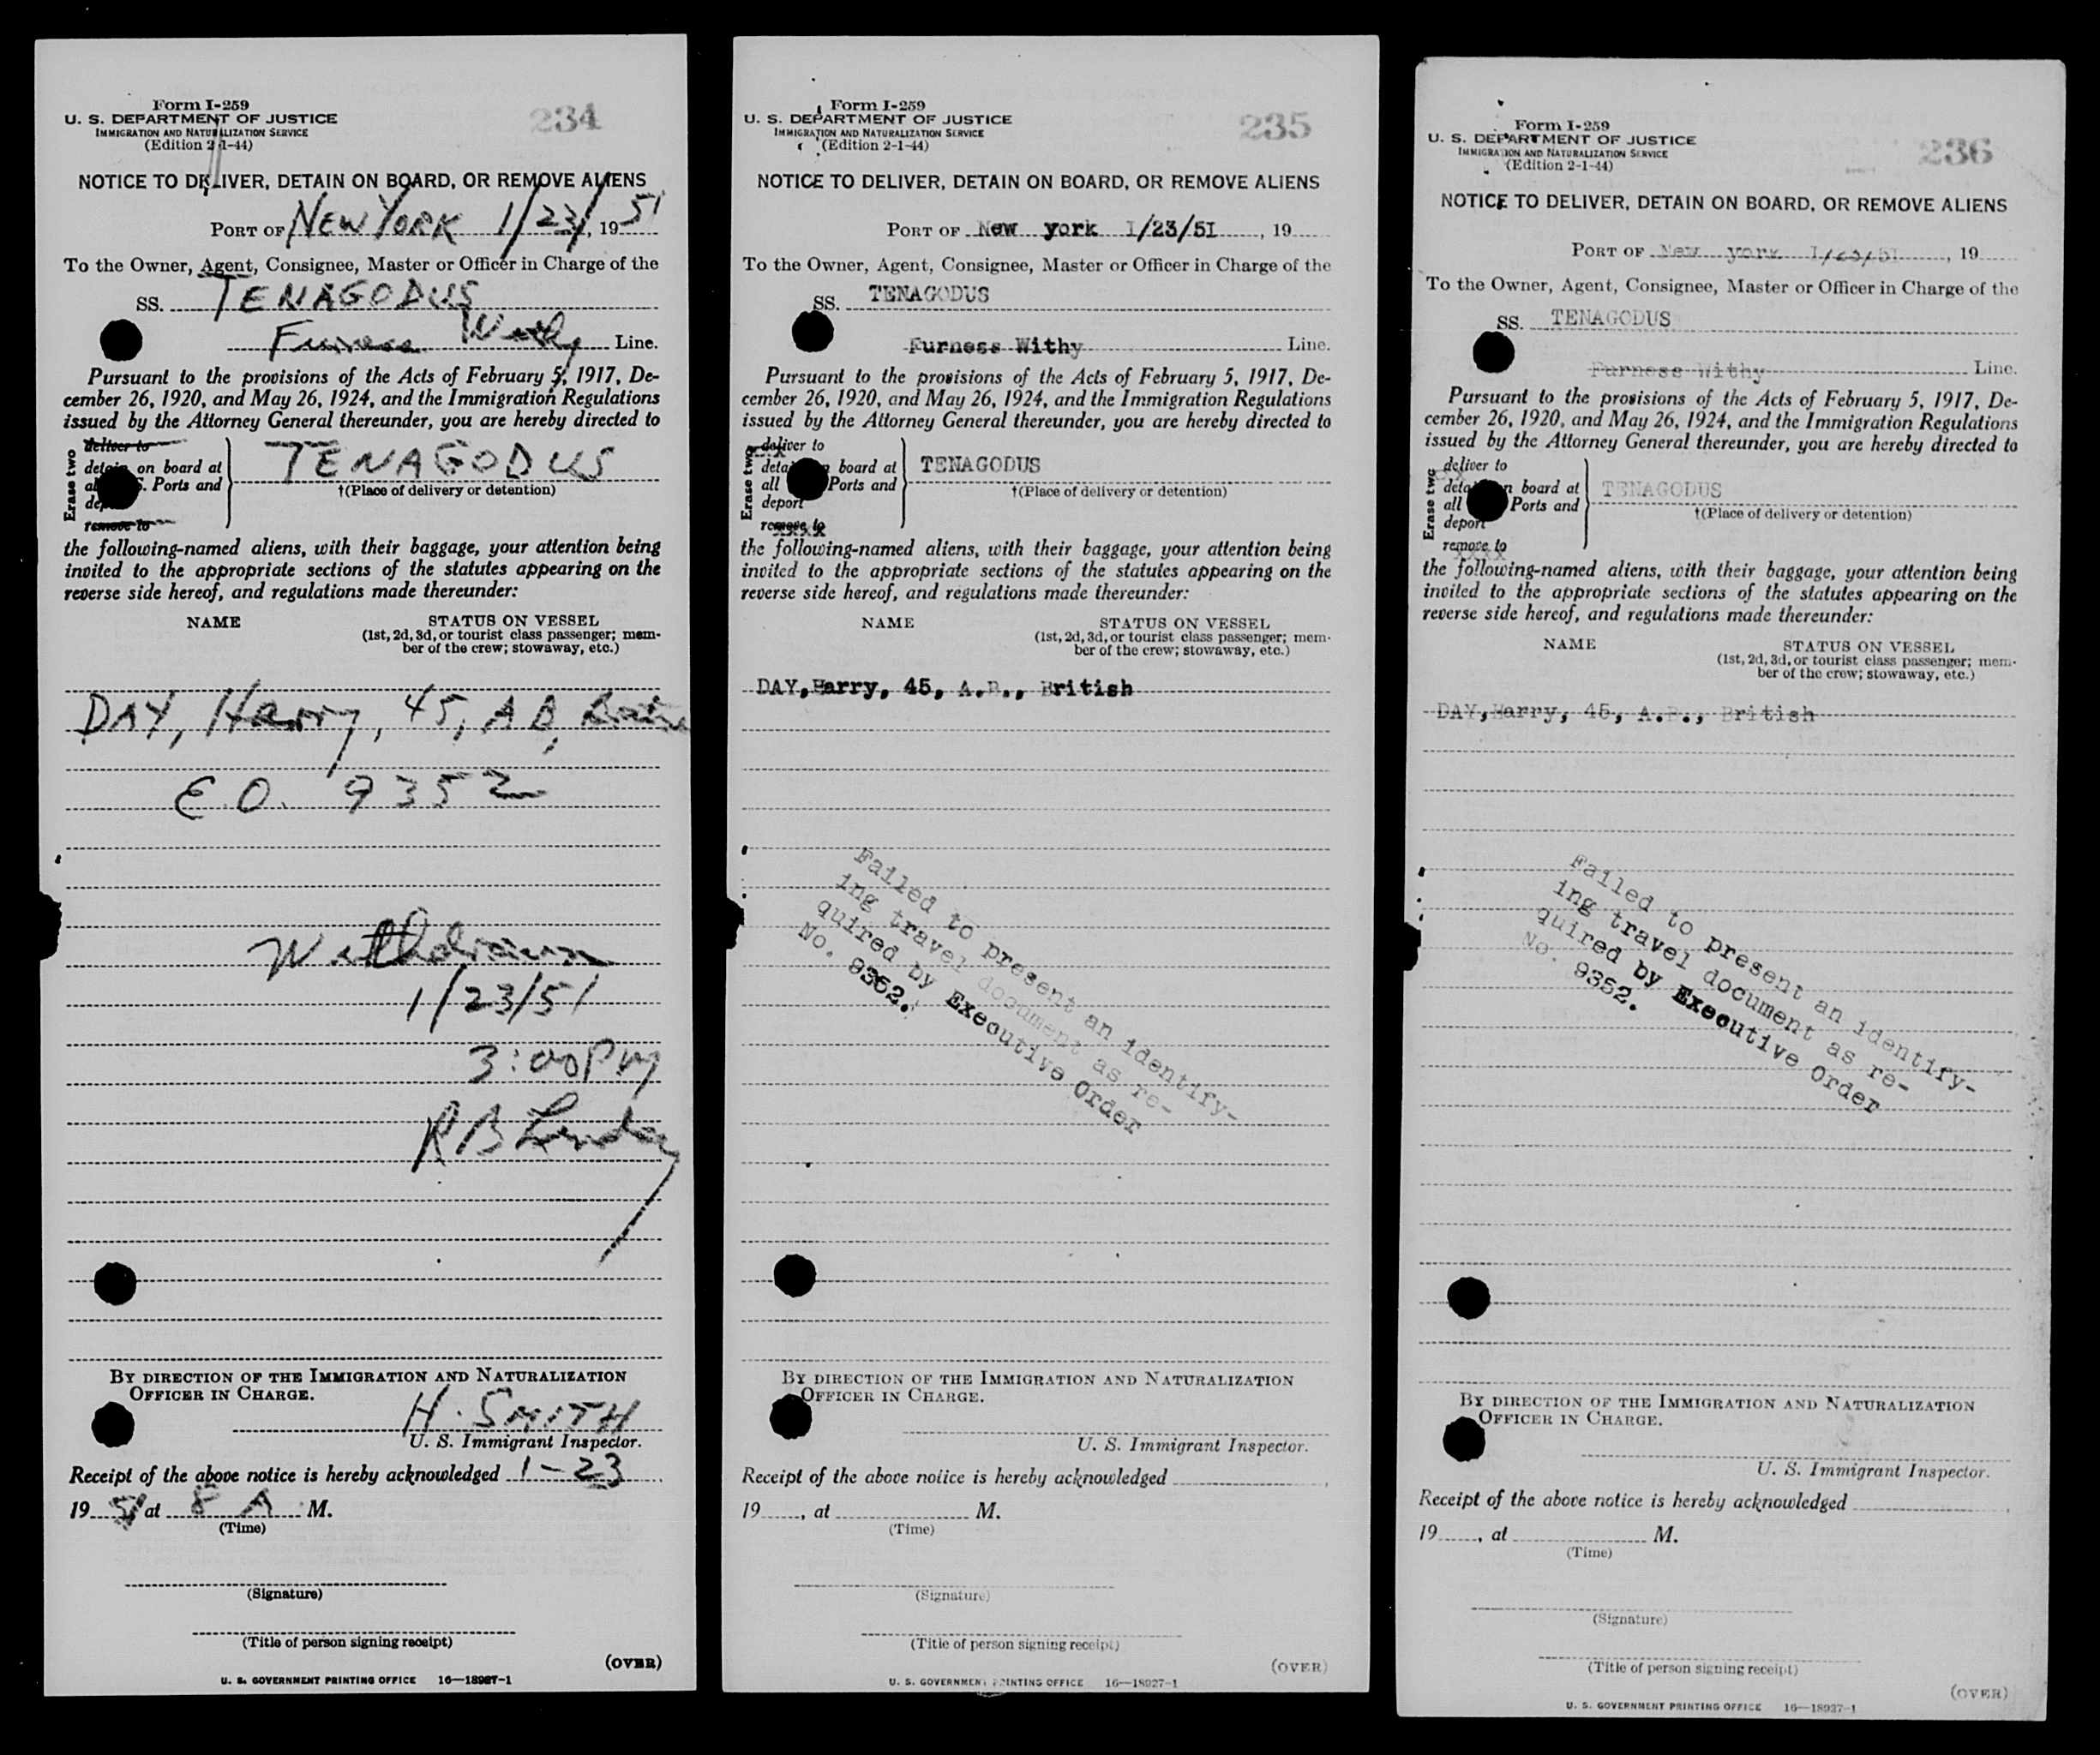 Form I-259
U. S. DEPARTMENT OF JUSTICE
IMMIGRATION AND NATURALIZATION SERVICE
(Edition 2-1-44)
234
NOTICE TO DELIVER, DETAIN ON BOARD, OR REMOVE ALIENS
PORT OF NEW YORK 1/23/, 1951
To the Owner, Agent, Consignee, Master or Officer in Charge of the
SS. TENAGODUS
Furness Withy Line.
Pursuant to the provisions of the Acts of February 5, 1917, De-
cember 26, 1920, and May 26, 1924, and the Immigration Regulations
issued by the Attorney General thereunder, you are hereby directed to
Erase two
deliver to
detain on board at
all U.S. Ports and
deport
remove to
TENAGODUS
†(Place of delivery or detention)
the following-named aliens, with their baggage, your attention being
invited to the appropriate sections of the statutes appearing on the
reverse side hereof, and regulations made thereunder:
NAME STATUS ON VESSEL
(1st, 2d, 3d, or tourist class passenger; mem-
ber of the crew; stowaway, etc.)
DAY, Harry, 45, A B, British
E.O. 9352
Withdrawn
1/23/51
3:00 PM
R B
BY DIRECTION OF THE IMMIGRATION AND NATURALIZATION
OFFICER IN CHARGE.
H. SMITH
U. S. Immigrant Inspector.
Receipt of the above notice is hereby acknowledged 1-23
1951 at 8 A M.
(Time)
(Signature)
(Title of person signing receipt)
(OVER)
U. S. GOVERNMENT PRINTING OFFICE 16—18927-1
Form I-259
U. S. DEPARTMENT OF JUSTICE
IMMIGRATION AND NATURALIZATION SERVICE
(Edition 2-1-44)
235
NOTICE TO DELIVER, DETAIN ON BOARD, OR REMOVE ALIENS
PORT OF New york 1/23/51, 19
To the Owner, Agent, Consignee, Master or Officer in Charge of the
SS. TENAGODUS
Furness Withy Line.
Pursuant to the provisions of the Acts of February 5, 1917, De-
cember 26, 1920, and May 26, 1924, and the Immigration Regulations
issued by the Attorney General thereunder, you are hereby directed to
Erase two
deliver to
detain on board at
all Ports and
deport
remove to
TENAGODUS
†(Place of delivery or detention)
the following-named aliens, with their baggage, your attention being
invited to the appropriate sections of the statutes appearing on the
reverse side hereof, and regulations made thereunder:
NAME STATUS ON VESSEL
(1st, 2d, 3d, or tourist class passenger; mem-
ber of the crew; stowaway, etc.)
DAY, Harry, 45, A.B., British
Failed to present an identify-
ing travel document as re-
quired by Executive Order
No. 9352.
BY DIRECTION OF THE IMMIGRATION AND NATURALIZATION
OFFICER IN CHARGE.
U. S. Immigrant Inspector.
Receipt of the above notice is hereby acknowledged
19, at M.
(Time)
(Signature)
(Title of person signing receipt)
(OVER)
U. S. GOVERNMENT PRINTING OFFICE 16—18927-1
Form I-259
U. S. DEPARTMENT OF JUSTICE
IMMIGRATION AND NATURALIZATION SERVICE
(Edition 2-1-44)
236
NOTICE TO DELIVER, DETAIN ON BOARD, OR REMOVE ALIENS
PORT OF New york 1/23/51, 19
To the Owner, Agent, Consignee, Master or Officer in Charge of the
SS. TENAGODUS
Furness Withy Line.
Pursuant to the provisions of the Acts of February 5, 1917, De-
cember 26, 1920, and May 26, 1924, and the Immigration Regulations
issued by the Attorney General thereunder, you are hereby directed to
Erase two
deliver to
detain on board at
all Ports and
deport
remove to
TENAGODUS
†(Place of delivery or detention)
the following-named aliens, with their baggage, your attention being
invited to the appropriate sections of the statutes appearing on the
reverse side hereof, and regulations made thereunder:
NAME STATUS ON VESSEL
(1st, 2d, 3d, or tourist class passenger; mem-
ber of the crew; stowaway, etc.)
DAY, Harry, 45, A.B., British
Failed to present an identify-
ing travel document as re-
quired by Executive Order
No. 9352.
BY DIRECTION OF THE IMMIGRATION AND NATURALIZATION
OFFICER IN CHARGE.
U. S. Immigrant Inspector.
Receipt of the above notice is hereby acknowledged
19, at M.
(Time)
(Signature)
(Title of person signing receipt)
(OVER)
U. S. GOVERNMENT PRINTING OFFICE 16—18927-1